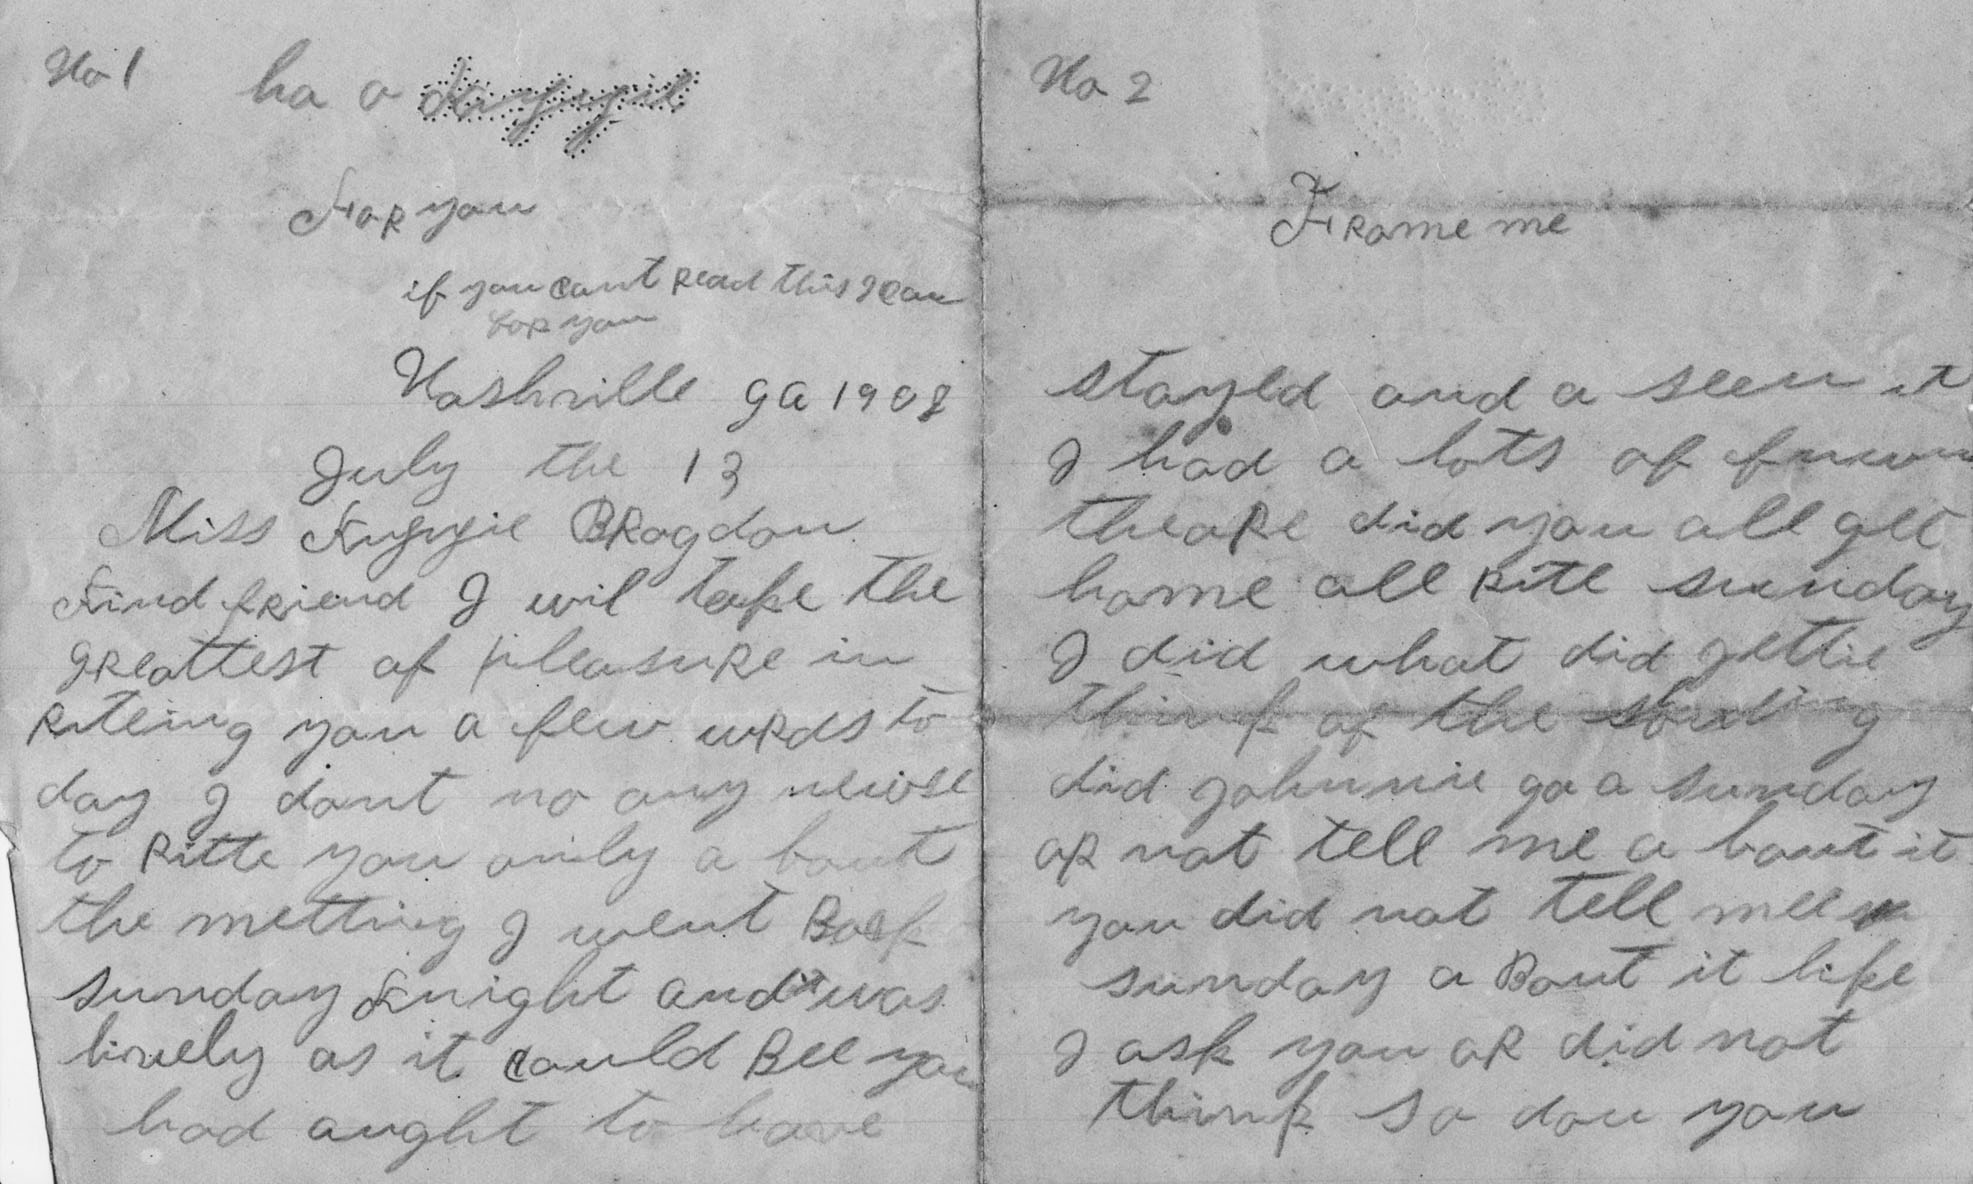 No 1
ha o
For you
if you cant read this I can
for you
Nashville ga 1908
July the 13
Miss Fuggie BRagdon
Find fRiend I wil take the
gReattest of pleasuRe in
Riteing you a few wRds to
day I dont no any newse
to Ritte you only a bout
the metting I went Back
sunday Knight and it was
lively as it could Bee you
had aught to have
No 2
FRome me
stayed and a seen it
I had a lots of
theaRe did you all get
home all Rite sunday
I did what did gettie
think of the
did Johnnie go a sunday
oR not tell me a bout it
you did not tell mee
sunday a Bout it like
I ask you oR did not
think so dou you